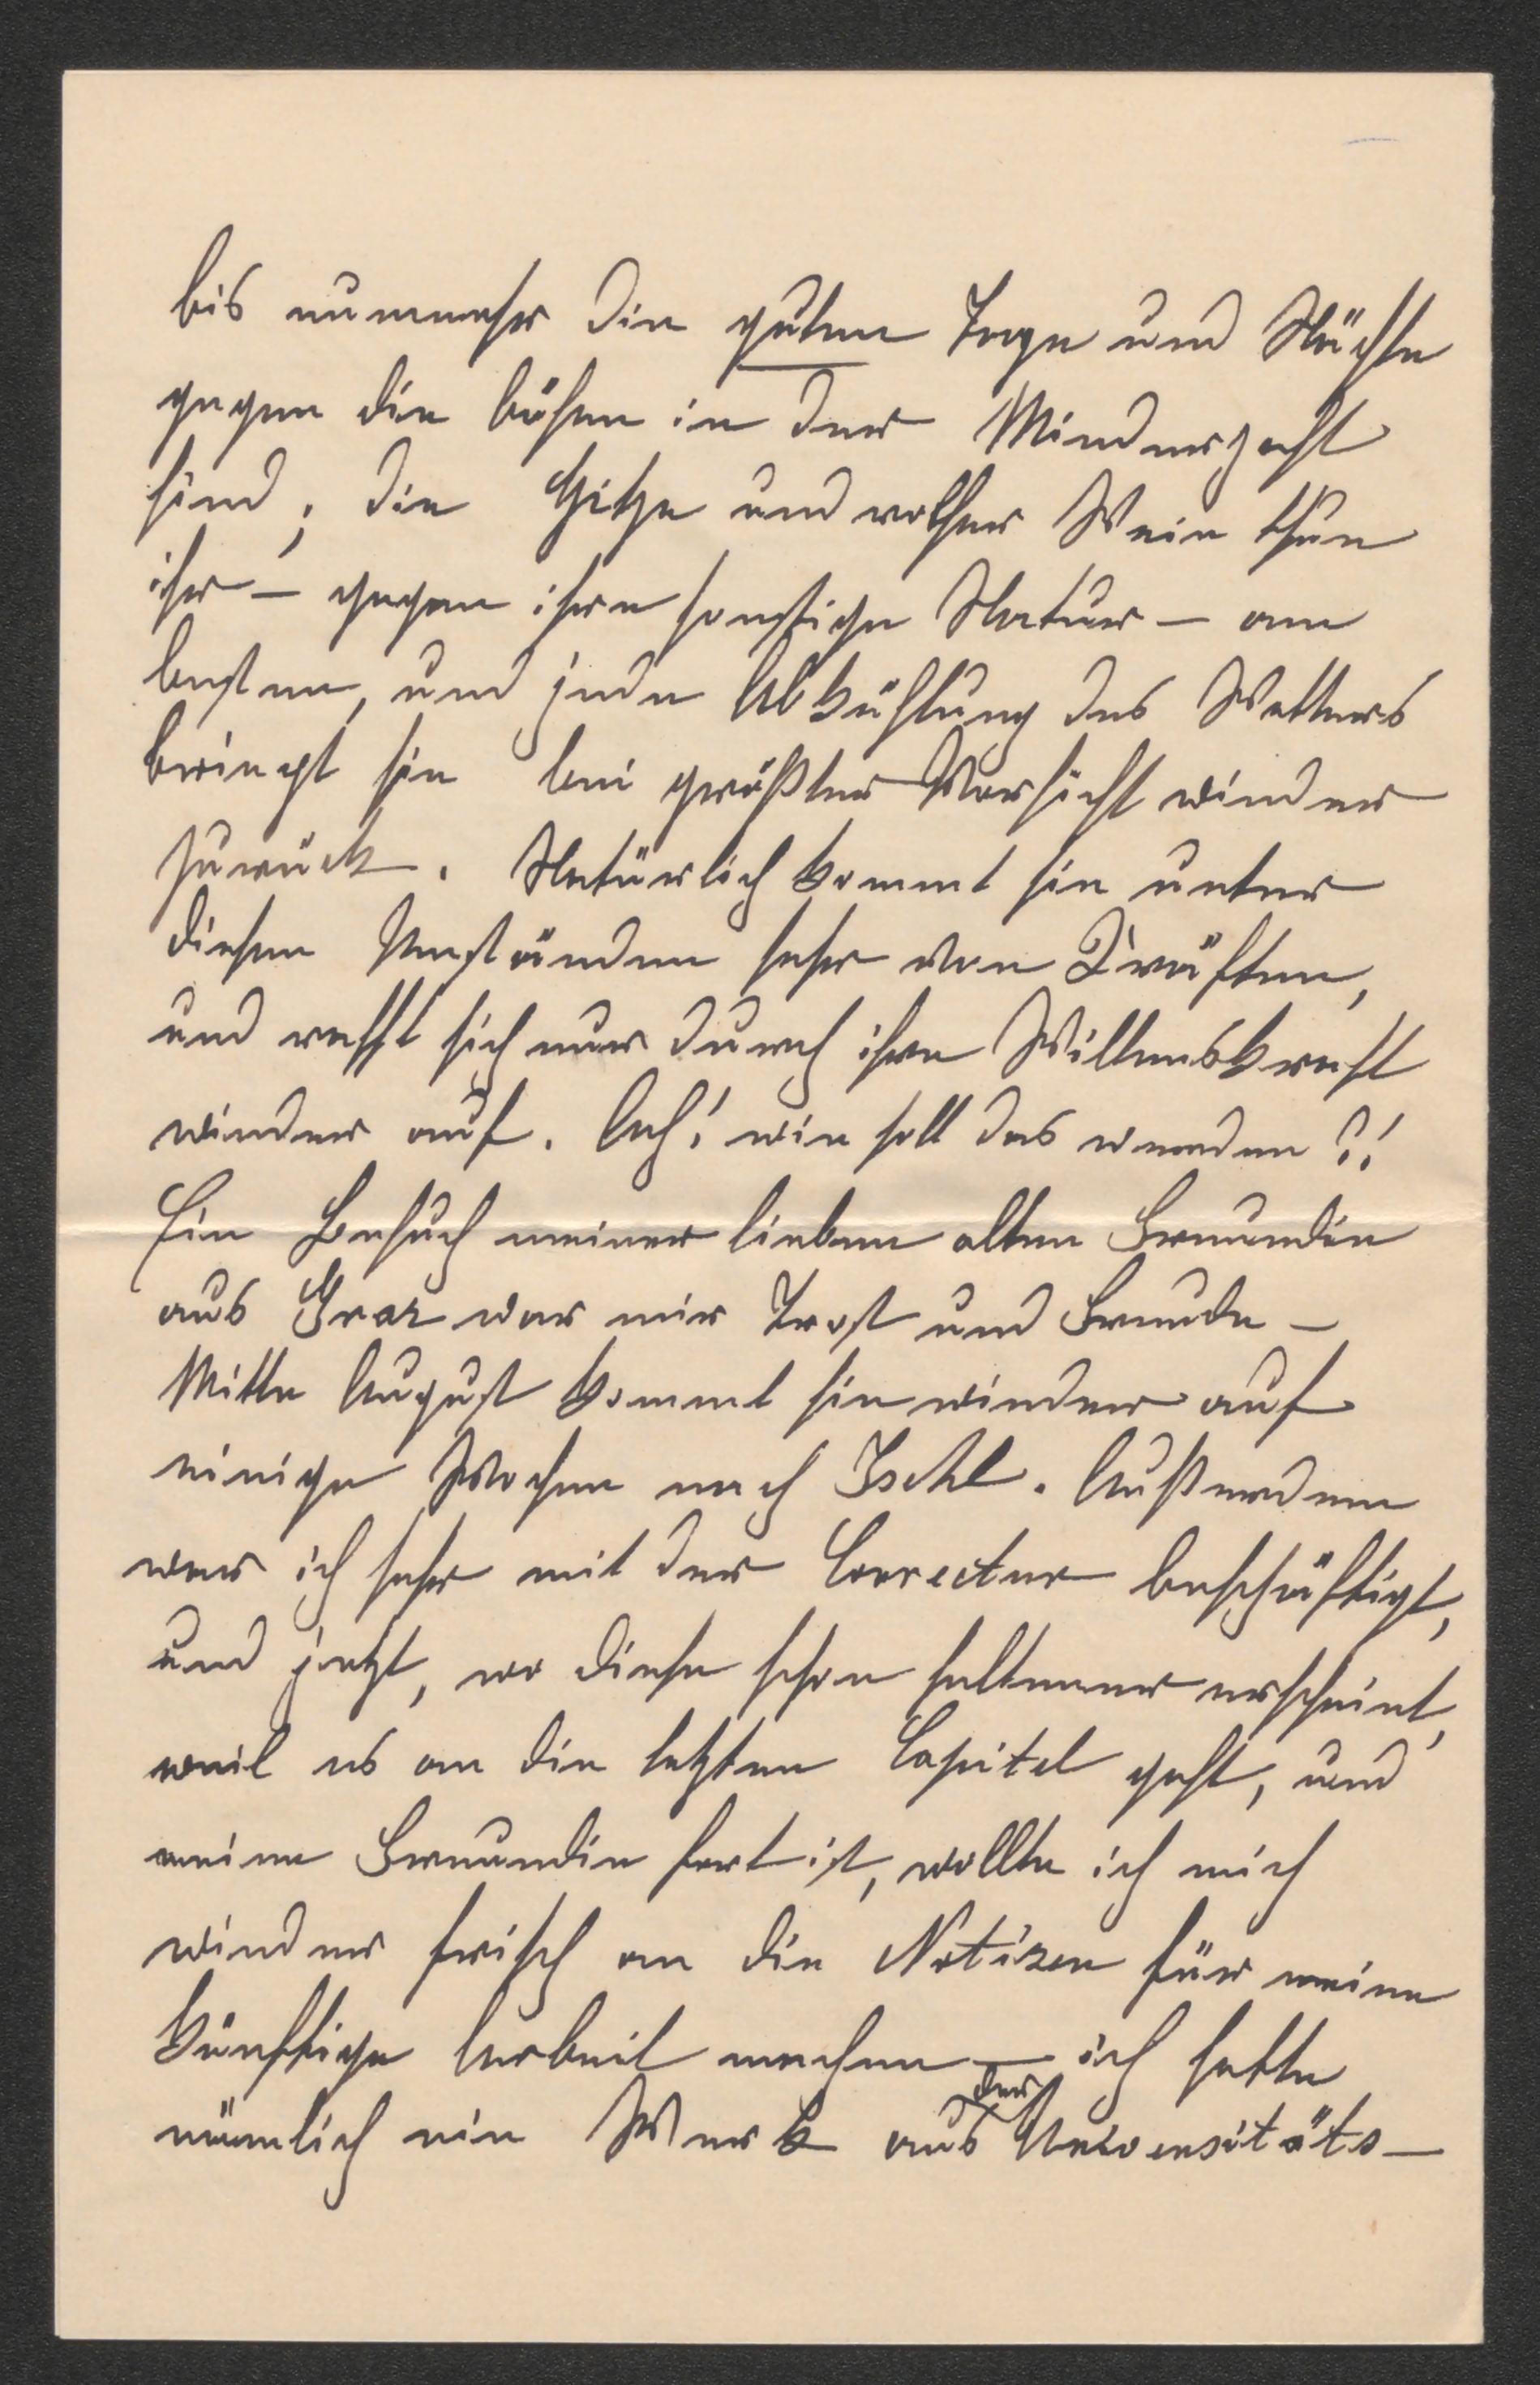 bis nunmehr die guten Tage und Nächte
gegen die bösen in der Minderzahl
sind; die Hitze und rother Wein thun
ihr – gegen ihre sonstige Natur – am
besten, und jede Abkühlung des Wetters
bringt sie bei größter Vorsicht wieder
zurück. Natürlich kommt sie unter
diesen Umständen sehr von Kräften,
und rafft sich nur durch ihre Willenskraft
wieder auf. Ach! wie soll das werden?!
Ein Besuch meiner lieben alten Freundin
aus Graz war mir Trost und Freude –
Mitte August kommt sie wieder auf
einige Wochen nach Ischl. Außerdem
war ich sehr mit der Correctur beschäftigt,
und jetzt, wo diese schon seltener erscheint,
weil es an die letzten Capitel geht, und
meine Freundin fort ist, wollte ich mich
wieder frisch an die Notizen für meine
künftige Arbeit machen – ich hatte
nämlich ein Werk aus der Universitäts-